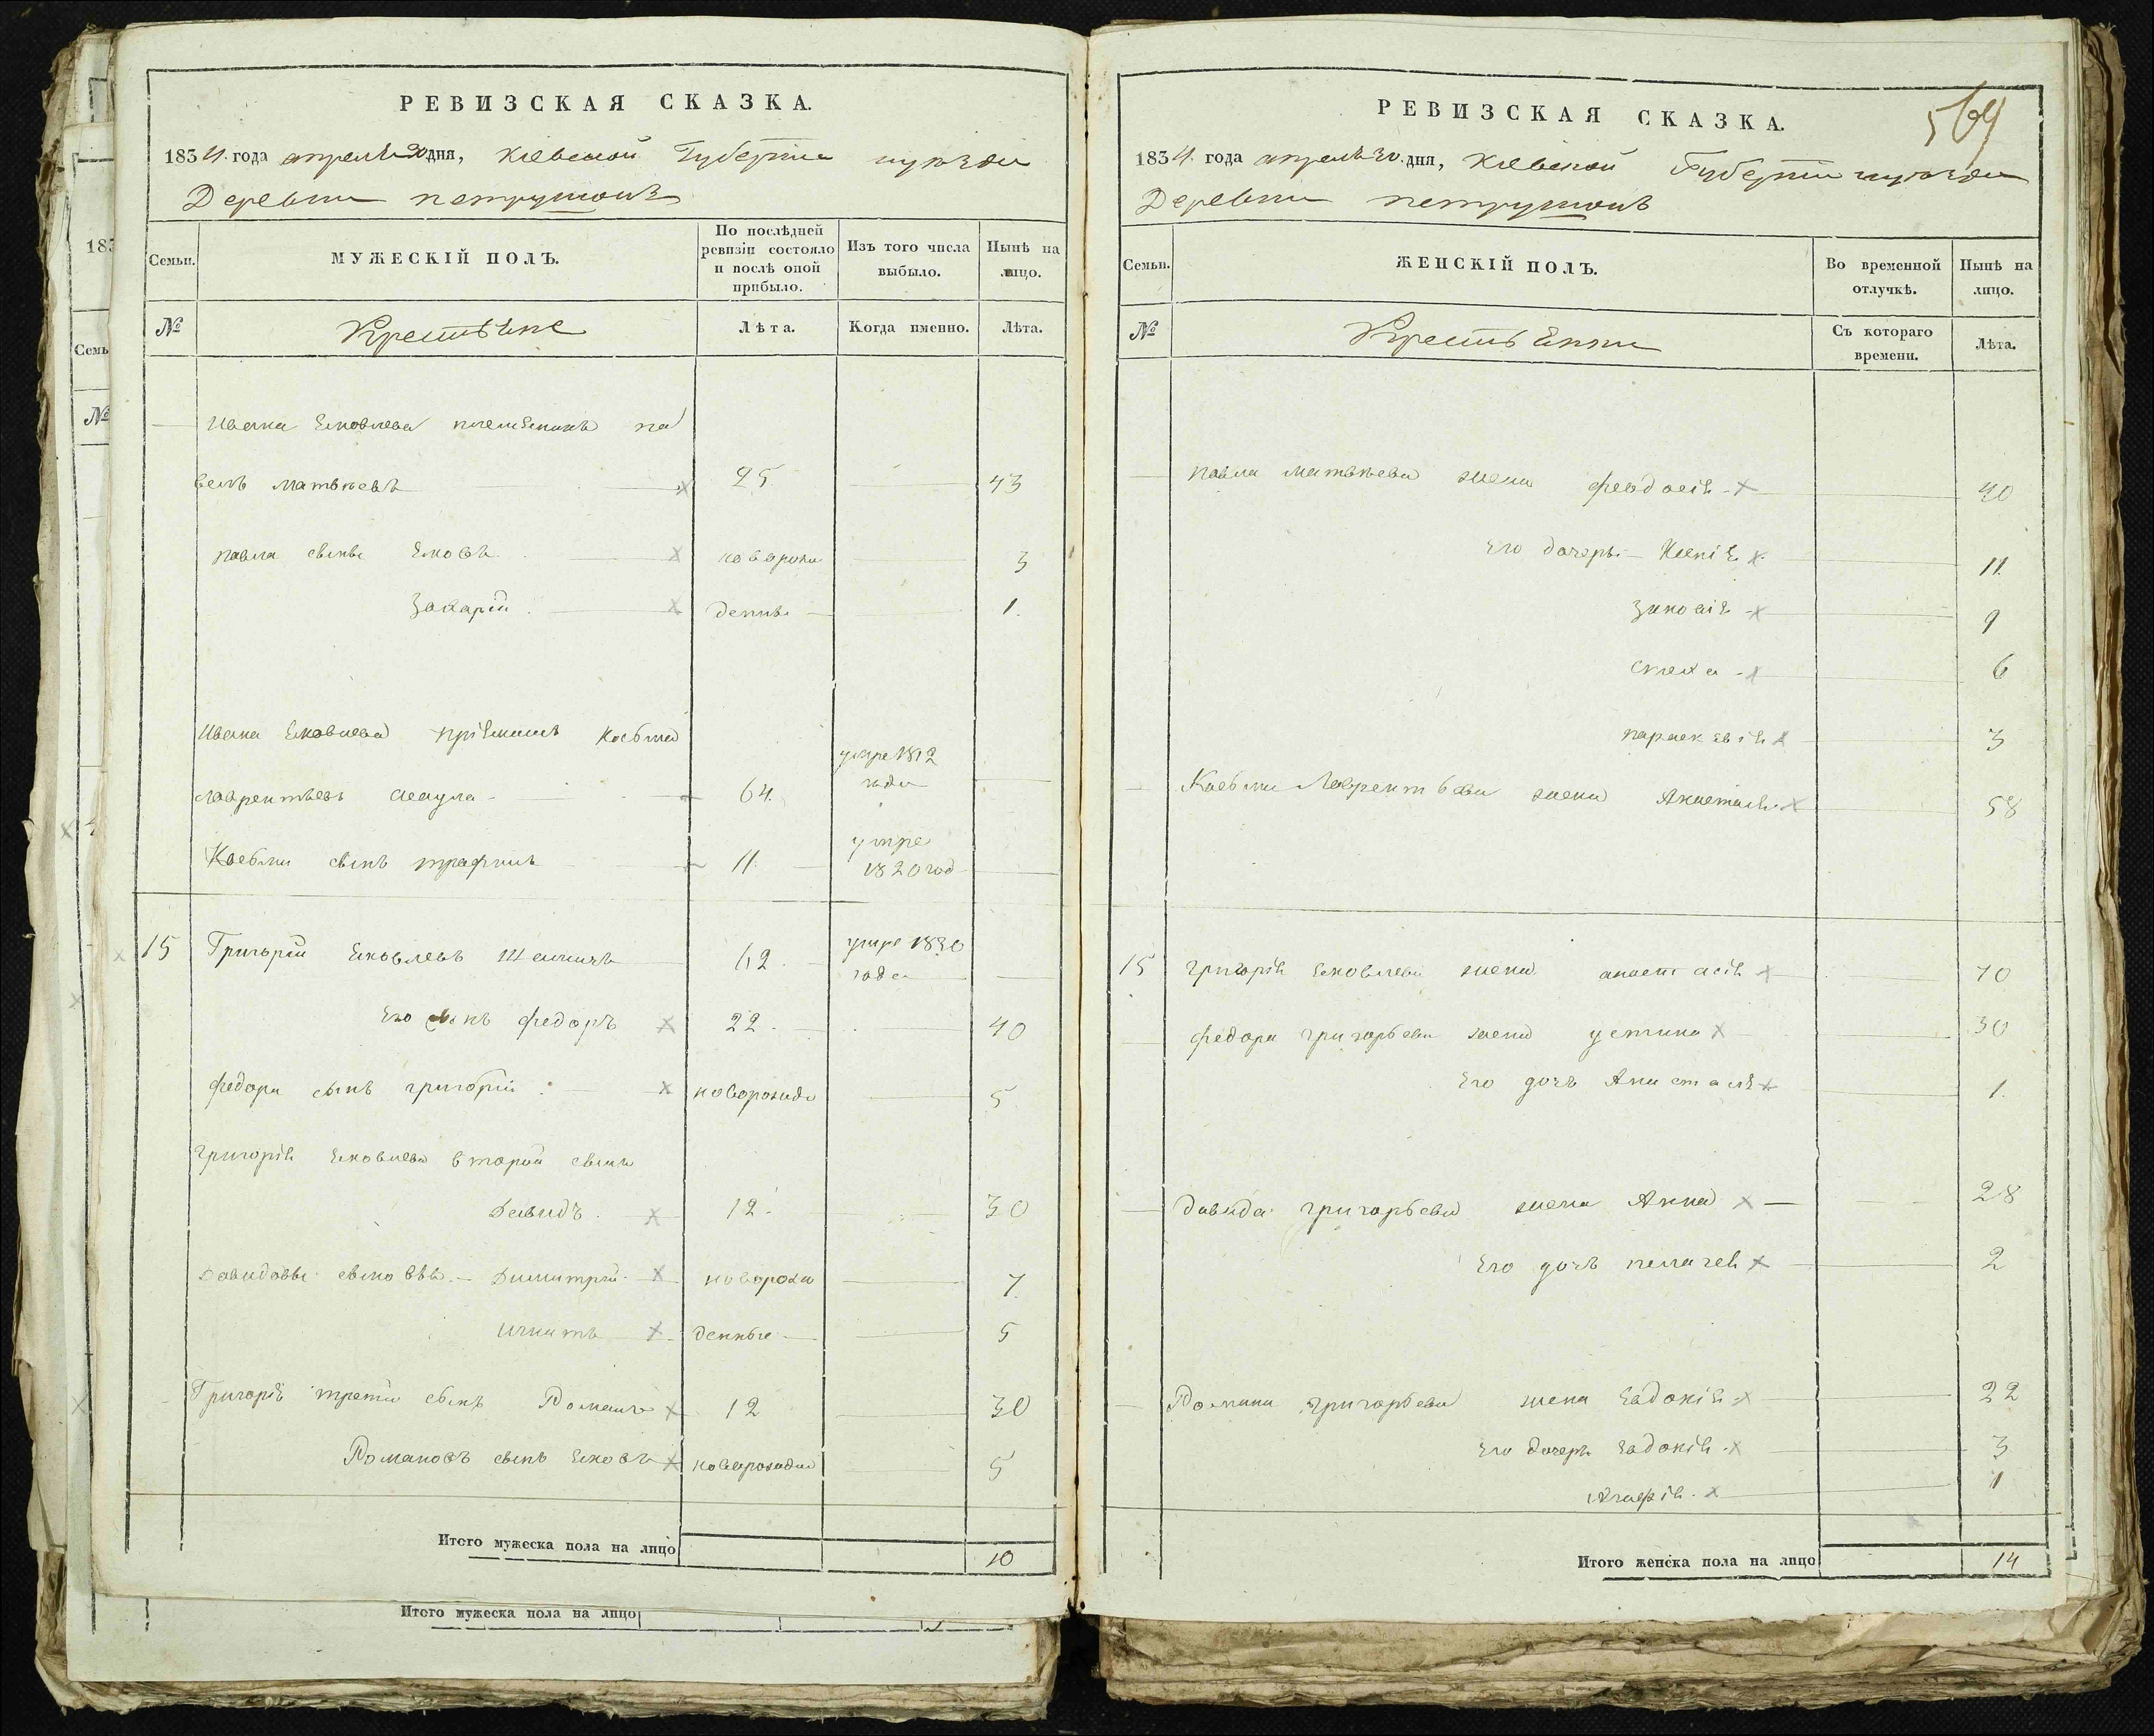 РЕВИЗСКАЯ СКАЗКА.
1834 года апреля 30 дня, Кіевской Губерніи и уѣзда
Деревни петрушокъ
Семьи.
МУЖЕСКІЙ ПОЛЪ.
По послѣдней ревизіи состояло и послѣ оной прибыло.
Изъ того числа выбыло.
Нынѣ на лицо.
№
Крестьяне
Лѣта.
Когда именно.
Лѣта.
Ивана Яковлева племянникъ па
велъ матвѣевъ 25 43
павла сыны Яковъ новорож 3
Захарій денны 1
Ивана Яковлева пріймакъ Косьма
лаврентьевъ 64 умре 1812 года
Косьмы сынъ трафимъ 11 умре 1820 год
15 Григорій Яковлевъ 62 умре 1830 года
Его сынъ федоръ 22 40
федора сынъ григорій новорожде 5
григорія Яковлева второй сынъ
Давидъ 12 30
Давидовы сыновья Димитрій новорож 7
игнатъ денные 5
Григорія третій сынъ Романъ 12 30
Романовъ сынъ Яковъ новорожде 5
Итого мужеска пола на лицо 10
Итого мужеска пола на лицо
РЕВИЗСКАЯ СКАЗКА.
569
1834 года апреля 30 дня, Кіевской Губерніи и уѣзда
Деревни петрушокъ
Семьи.
ЖЕНСКІЙ ПОЛЪ.
Во временной отлучкѣ.
Нынѣ на лицо.
№
Крестьянки
Съ котораго времени.
Лѣта.
павла матвѣева жена феодосія 40
Его дочеры Ксенія 11
Зиновія 9
6
параскевія 3
Косьмы Лаврентьева жена Анастасія 58
15 григорія Яковлева жена анастасія 70
федора григорьева жена устина 30
Его дочь Анастасія 1
давида григорьева жена Анна 28
Его дочь пелагея 2
Романа григорьева жена Евдокія 22
Его дочеры Евдокія 3
Агафія 1
Итого женска пола на лицо 14